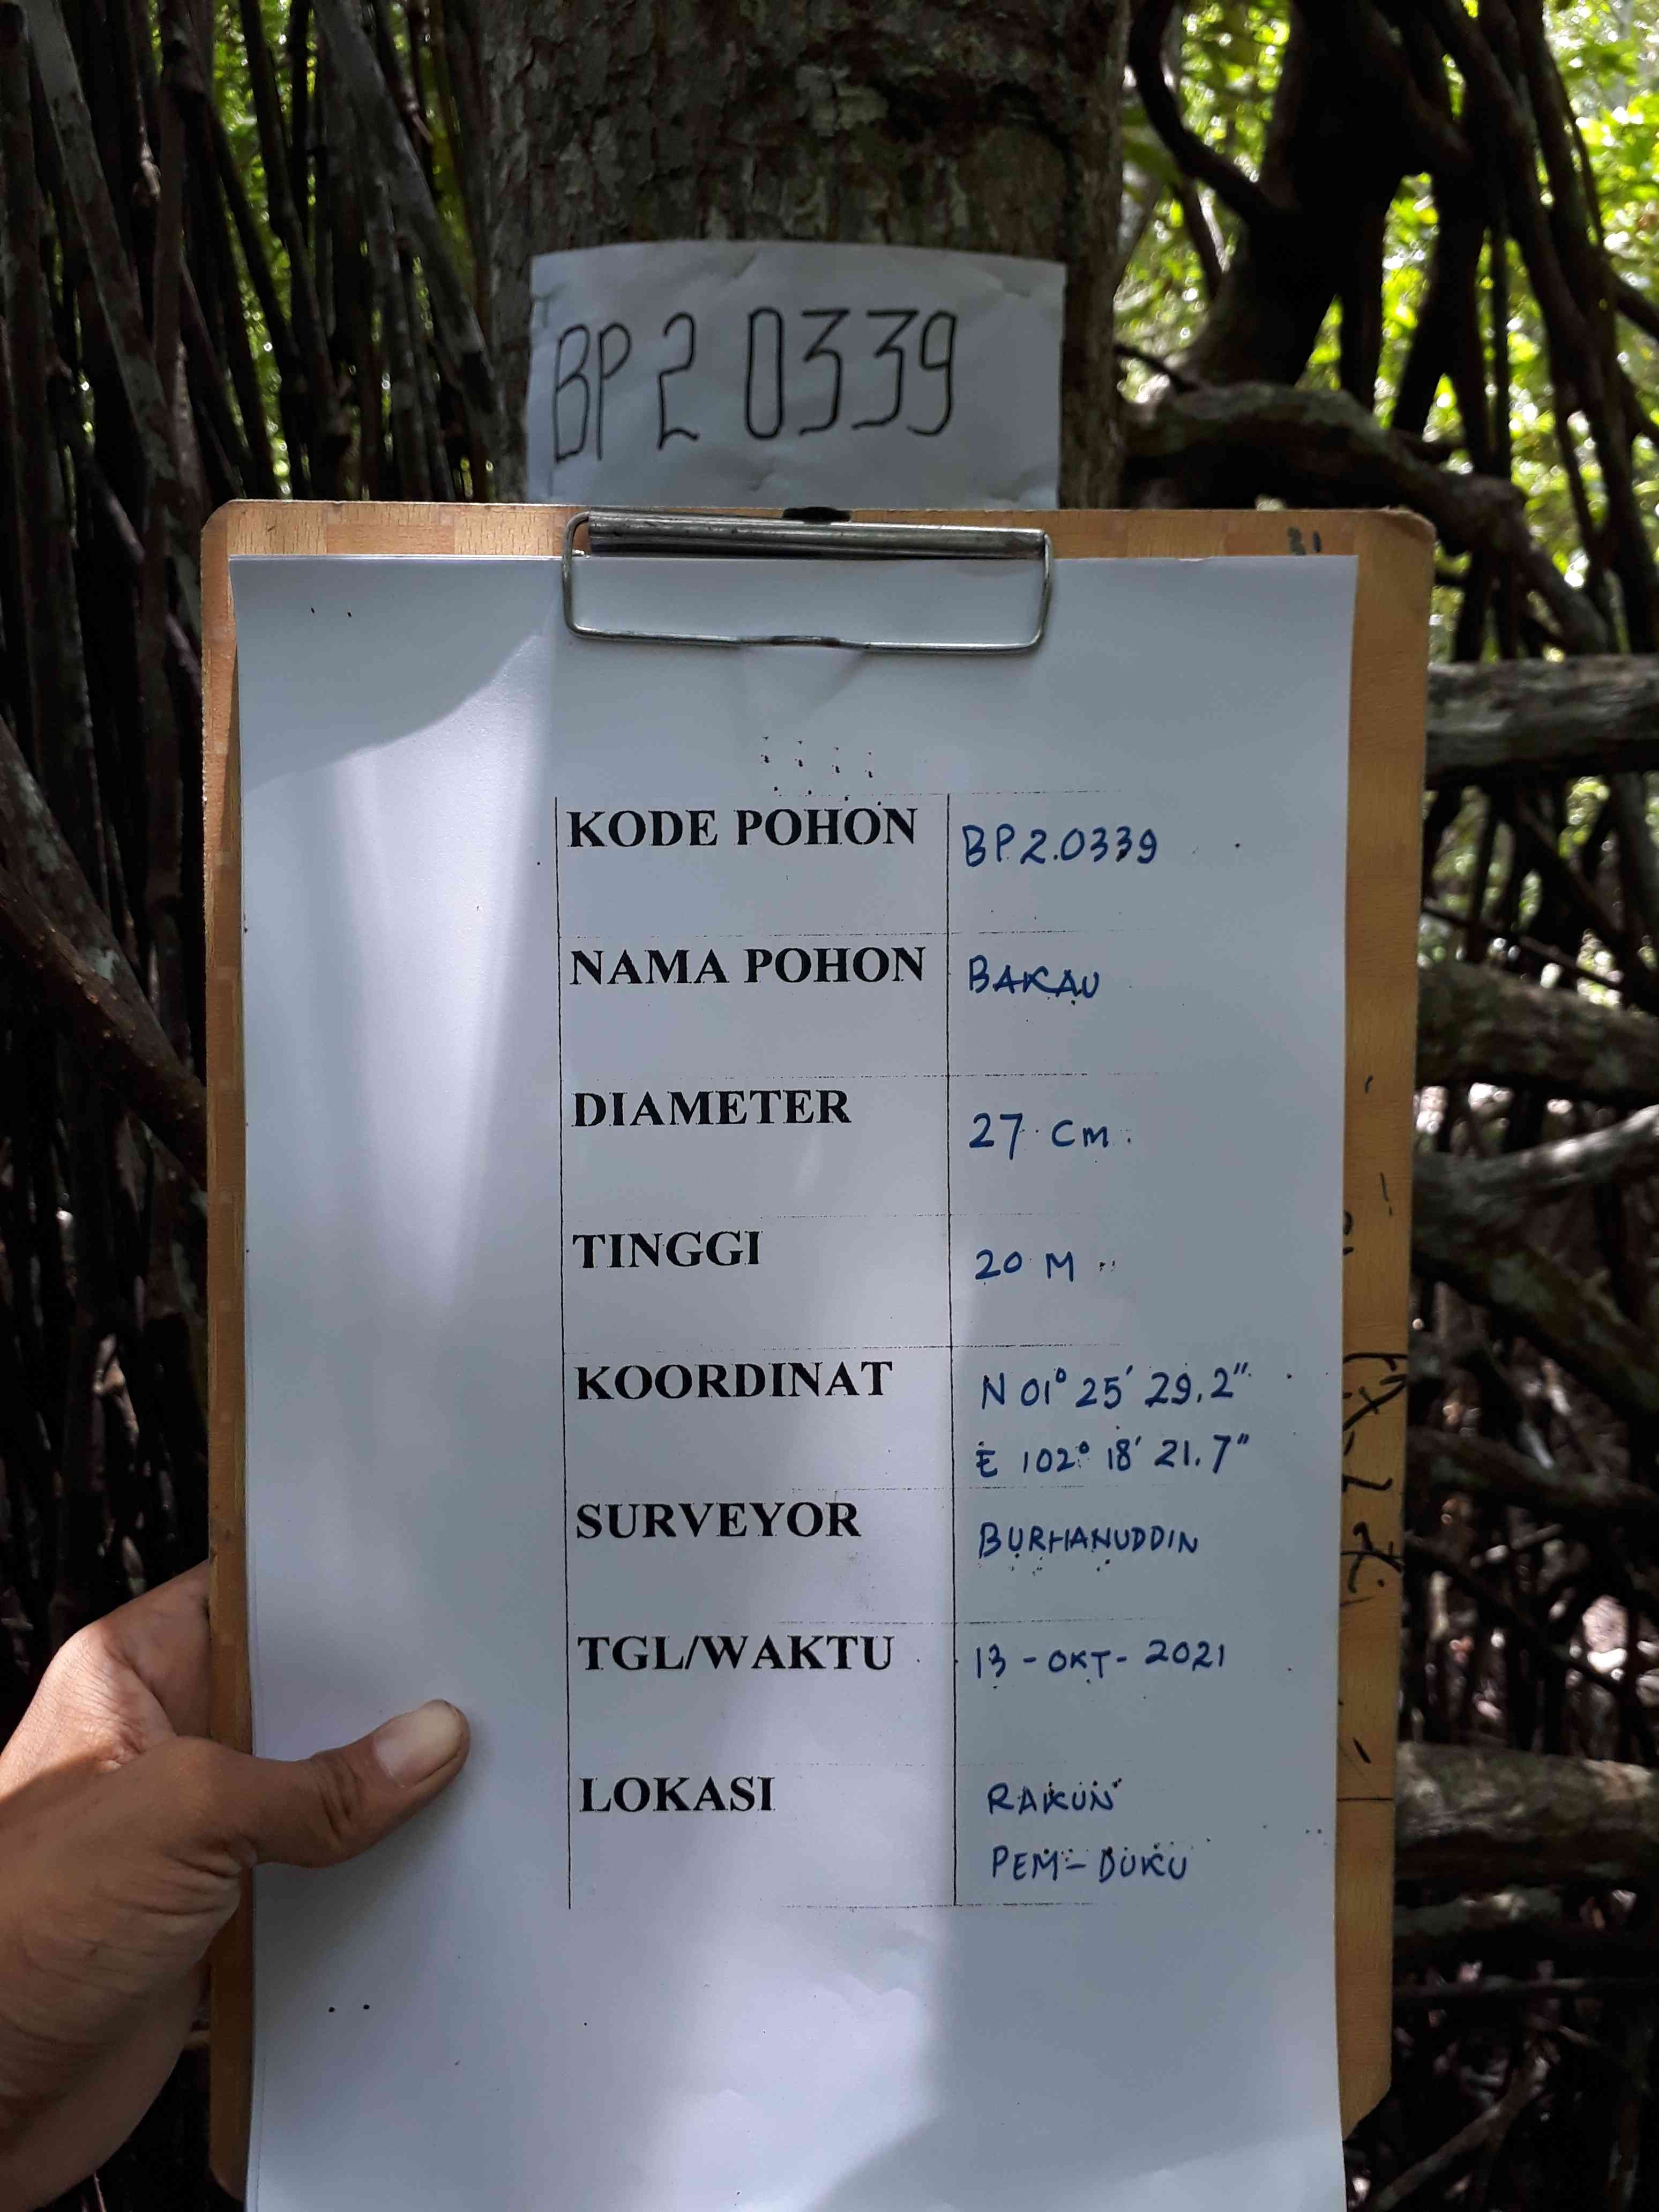 BP2 0339
KODE POHON BP2.0339
NAMA POHON BAKAU
DIAMETER 27 Cm
TINGGI 20 M
KOORDINAT N 01° 25' 29,2"
E 102° 18' 21.7"
SURVEYOR BURHANUDDIN
TGL/WAKTU 13 - OKT - 2021
LOKASI RAKUN
PEM - DUKU